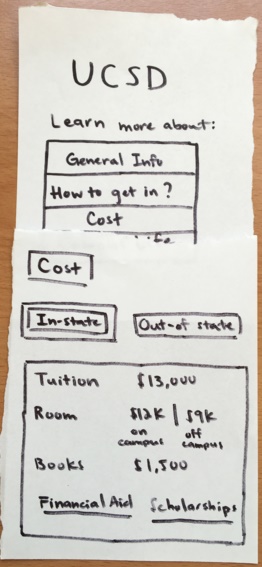 UCSD
Learn more about:
General Info
How to get in?
Cost
Cost
In-state Out-of state
Tuition $13,000
Room $12K | $9K
on campus off campus
Books $1,500
Financial Aid Scholarships